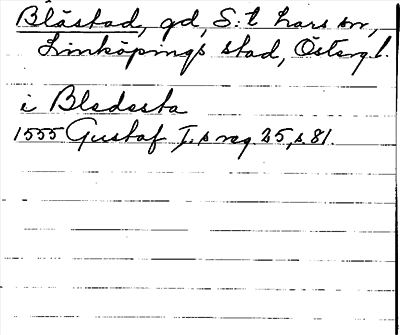 Blåstad, gd, S:t Lars sn,
Linköpings stad, Östergl.
i Bledesta
1555 Gustaf I:s reg. 25, s. 81.